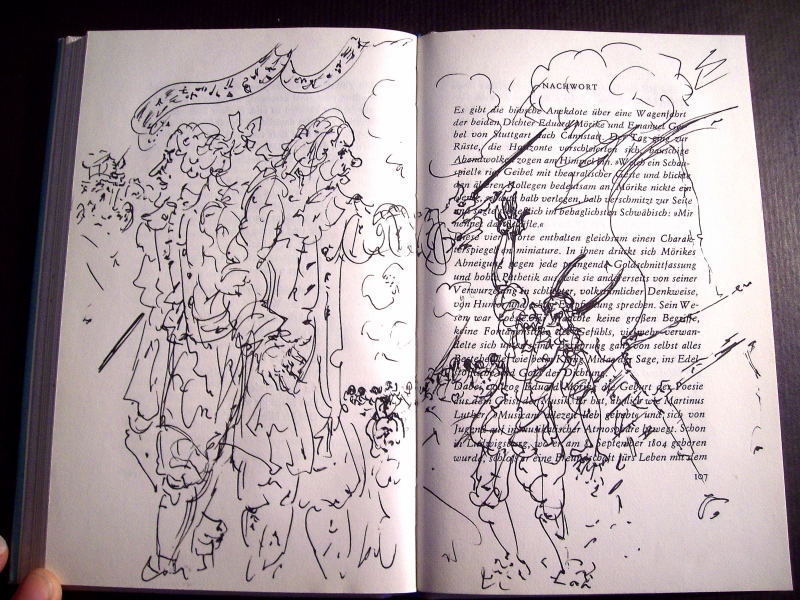 NACHWORT
Es gibt die hübsche Anekdote über eine Wagenfahrt
der beiden Dichter Eduard Mörike und Emanuel Gei-
bel von Stuttgart nach Cannstatt. Der Tag ging zur
Rüste, die Horizonte verschleierten sich, bauschige
Abendwolken zogen am Himmel hin. »Welch ein Schau-
spiel!« rief Geibel mit theatralischer Geste und blickte
den älteren Kollegen bedeutsam an. Mörike nickte ein
wenig, halb verlegen, halb verschmitzt zur Seite
und sagte endlich im behaglichsten Schwäbisch: »Mir
nennet
Diese vier Worte enthalten gleichsam einen Charak-
terspiegel en miniature. In ihnen drückt sich Mörikes
Abneigung gegen jede prangende Goldschnittfassung
und hohle Pathetik aus, wie sie andrerseits von seiner
Verwurzelung in schlichter, volkstümlicher Denkweise,
von Humor und Empfindung sprechen. Sein We-
sen war Poesie. Er brauchte keine großen Begriffe,
keine Fontänen des Gefühls, vielmehr verwan-
delte sich unter seiner Berührung ganz von selbst alles
Bestehende, wie beim König Midas der Sage, ins Edel-
und Gold der Dichtung.
Dabei vollzog Eduard Mörike die Geburt der Poesie
aus dem Geist der Musik. Er hat, ähnlich wie Martinus
Luther, »Musicam allezeit lieb gehabt« und sich von
Jugend auf in musikalischer Atmosphäre bewegt. Schon
in Ludwigsburg, wo er am 8. September 1804 geboren
wurde, schloß er eine Freundschaft fürs Leben mit dem
107